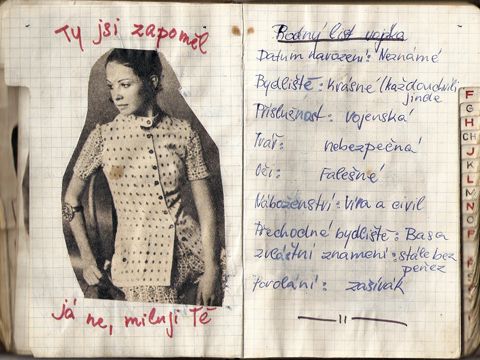 Ty jsi zapoměl
já ne, miluji Tě
Rodný list vojka
Datum narození: Neznámé
Bydliště: Krásné (každou chvíli
jinde
Příslušnost: vojenská
Tvář: nebezpečná
Oči: Falešné
Náboženství: Víra a civil
Přechodné bydliště: Basa
zvláštní znamení: stále bez
peněz
povolání: zašívák
11
F
G
H
CH
J
K
L
M
N
O
P
R
S